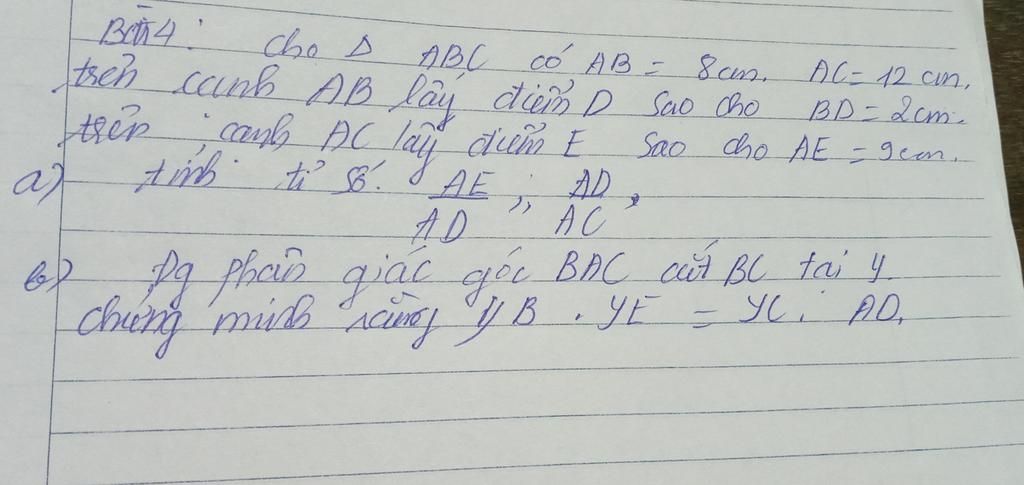 Bài 4: Cho Δ ABC có AB = 8cm. AC = 12 cm,
trên cạnh AB lấy điểm D sao cho BD = 2cm.
trên cạnh AC lấy điểm E sao cho AE = 9cm.
a) tính tỉ số. AE/AD ; AD/AC,
b) Đg phân giác góc BAC cắt BC tại Y
chứng minh rằng YB . YE = YC . AD.